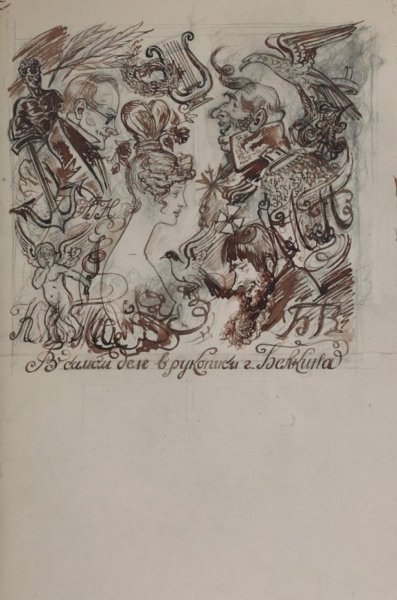 Б В
В самом деле в рукописи г. Белкина